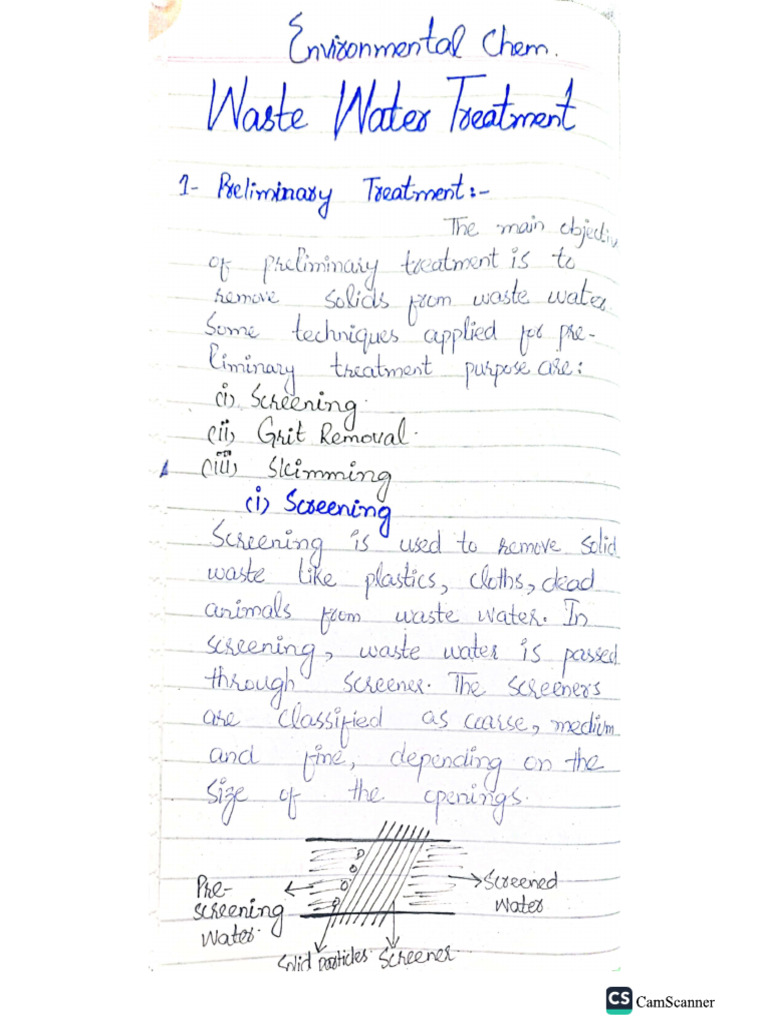 Environmental Chem.
Waste Water Treatment
1- Preliminary Treatment:-
The main objectiv
of preliminary treatment is to
remove solids from waste water.
Some techniques applied for pre-
liminary treatment purpose are:
(i) Screening.
(ii) Grit Removal.
(iii) Skimming
(i) Screening
Screening is used to remove solid
waste like plastics, cloths, dead
animals from waste water. In
screening, waste water is passed
through screener. The screeners
are classified as coarse, medium
and fine, depending on the
size of the openings.
Pre-
screening
Water.
Screened
Water
Solid particles.
Screener.
CS CamScanner